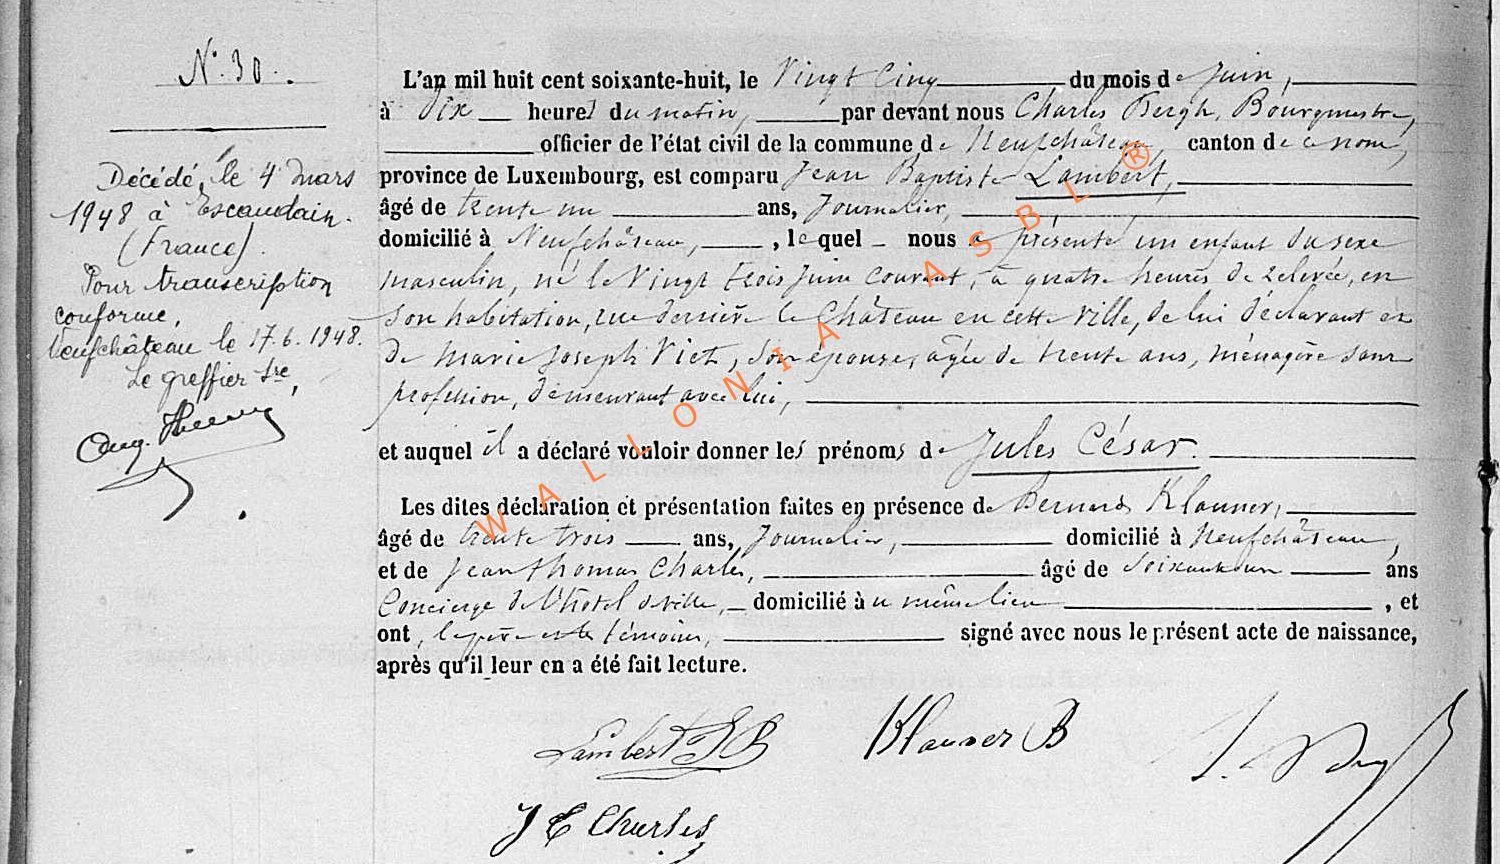 N° 30.
Décédé, le 4 mars
1948 à Escaudain.
(France).
Pour transcription
conforme,
Neufchâteau le 17.6.1948.
Le greffier
L'an mil huit cent soixante-huit, le Vingt Cinq du mois de Juin,
à Dix heures du matin, par devant nous Charles Bergh, Bourgmestre,
officier de l'état civil de la commune de Neufchâteau, canton de ce nom,
province de Luxembourg, est comparu Jean Baptiste Lambert,
âgé de trente un ans, Journalier,
domicilié à Neufchâteau, , lequel nous a présenté un enfant du sexe
masculin, né le Vingt trois Juin courant, à quatre heures de relevée, en
son habitation, rue derrière le Château en cette ville, de lui déclarant et
de Marie Joseph Viet, son épouse, âgée de trente ans, ménagère sans
profession, demeurant avec lui,
et auquel il a déclaré vouloir donner les prénoms de Jules César.
Les dites déclaration et présentation faites en présence de Bernard Klauner,
âgé de trente trois ans, Journalier, domicilié à Neufchâteau,
et de Jean Thomas Charles, âgé de soixante un ans
Concierge de l'hotel de ville, domicilié à u même lieu , et
ont, le père et les témoins, signé avec nous le présent acte de naissance,
après qu'il leur en a été fait lecture.
Lambert J B
Klauner B
J T Charles
WALLONIA ASBL ®